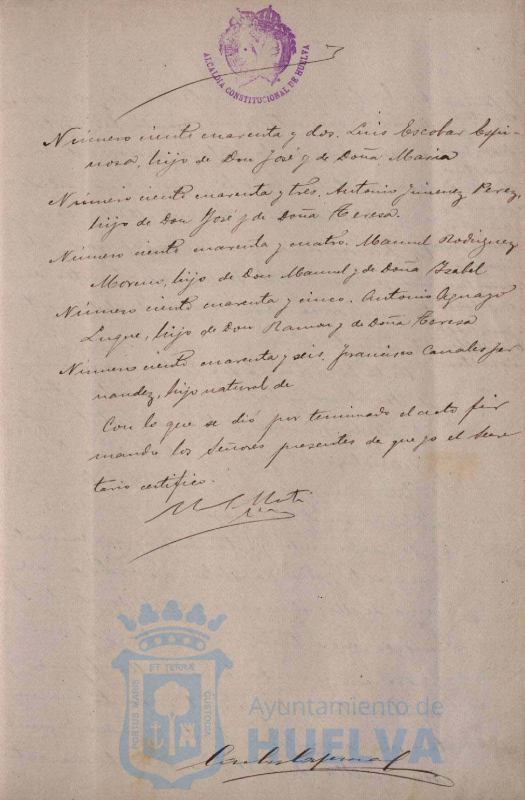 ALCALDIA CONSTITUCIONAL DE HUELVA
Número ciento cuarenta y dos. Luis Escobar Espi-
nosa, hijo de Don José y de Doña Maria
Número ciento cuarenta y tres. Antonio Jimenez Perez,
hijo de Don José y de Doña Teresa.
Número ciento cuarenta y cuatro. Manuel Rodriguez
Moreno, hijo de Don Manuel y de Doña Isabel
Número ciento cuarenta y cinco. Antonio
Luque, hijo de Don Ramon y de Doña Teresa
Número ciento cuarenta y seis. Francisco Canales Fer
nandez, hijo natural de
Con lo que se dió por terminado el acto fir
mando los Señores presentes de que yo el Secre
tario certifico.
PORTUS MARIS ET TERRÆ CUSTODIA
Ayuntamiento de
HUELVA